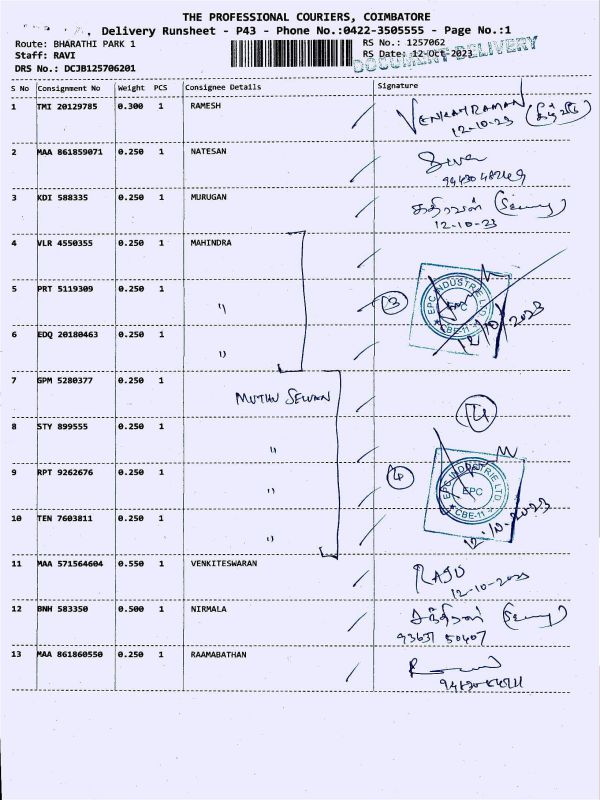 THE PROFESSIONAL COURIERS, COIMBATORE
Delivery Runsheet - P43 - Phone No.:0422-3505555 - Page No.:1
Route: BHARATHI PARK 1
RS No.: 1257062
Staff: RAVI
RS Date: 12-Oct-2023
DOCUMENT DELIVERY
DRS No.: DCJB125706201
S No Consignment No Weight PCS Consignee Details Signature
1 TMI 20129785 0.300 1 RAMESH VENKATRAMAN
12-10-23
2 MAA 861859071 0.250 1 NATESAN Siva
3 KDI 588335 0.250 1 MURUGAN
12-10-23
4 VLR 4550355 0.250 1 MAHINDRA
5 PRT 5119309 0.250 1 " 3 EPC INDUSTRIE LTD
EPC
CBE-11
12/10/2023
6 EDQ 20180463 0.250 1 "
7 GPM 5280377 0.250 1 MUTHU SELVAN
4
8 STY 899555 0.250 1 "
9 RPT 9262676 0.250 1 " 4 EPC INDUSTRIE LTD
EPC
CBE-11
12-10-2023
10 TEN 7603811 0.250 1 "
11 MAA 571564604 0.550 1 VENKITESWARAN RAJU
12-10-2023
12 BNH 583350 0.500 1 NIRMALA
93631 50407
13 MAA 861860550 0.250 1 RAAMABATHAN